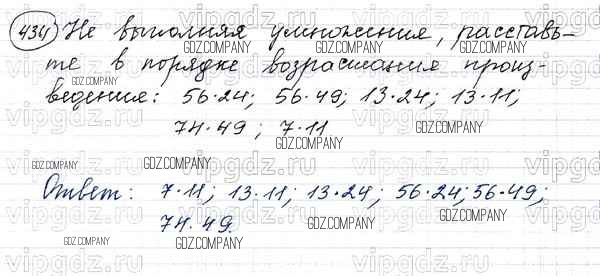 434) Не выполняя умножения, расставь-
те в порядке возрастания произ-
ведения: 56·24; 56·49; 13·24; 13·11;
74·49; 7·11
Ответ: 7·11; 13·11; 13·24; 56·24; 56·49;
74·49.
GDZ.COMPANY
vipgdz.ru